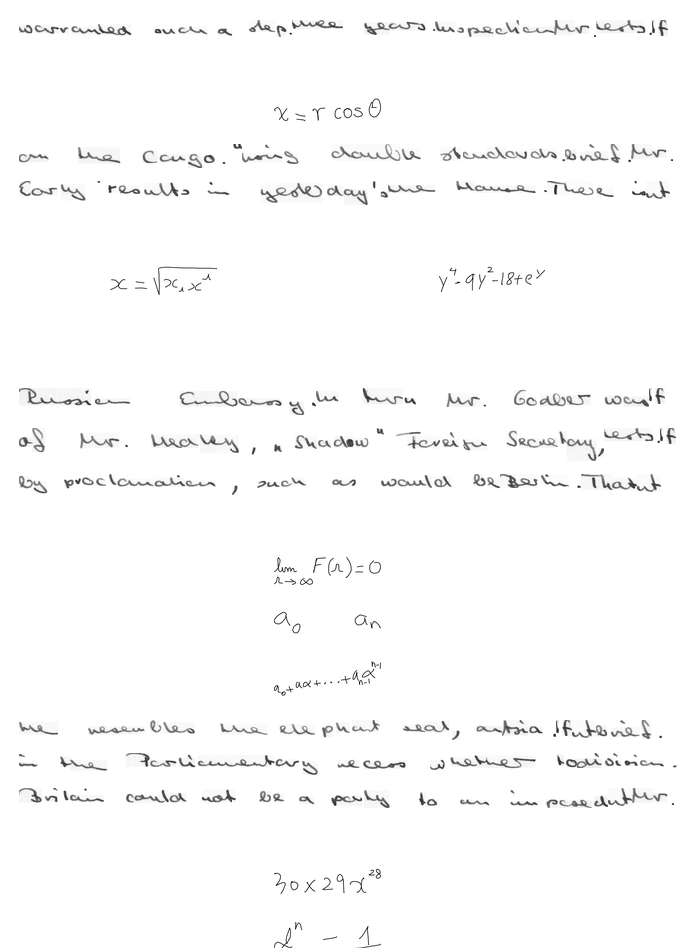 warranted such a step. three years. Inspection Mr. tests. If
x = r cos θ
on the Congo. "using double standards. brief. Mr.
Early results in yesterday's the House. There isn't
x = √(x₁x¹)    y⁴-9y²-18+e^y
Russian Embassy. In turn Mr. Godber was If
of Mr. Healey, "Shadow" Foreign Secretary, tests. If
by proclamation, such as would be Berlin. That
lim_{r→∞} F(r)=0
a₀    aₙ
a₀+aα+...+a_{n-1}α^{n-1}
the resembles the elephant seal, If brief.
in the Parliamentary recess whether to division.
Britain could not be a party to an imposed Mr.
30×29x²⁸
2ⁿ - 1